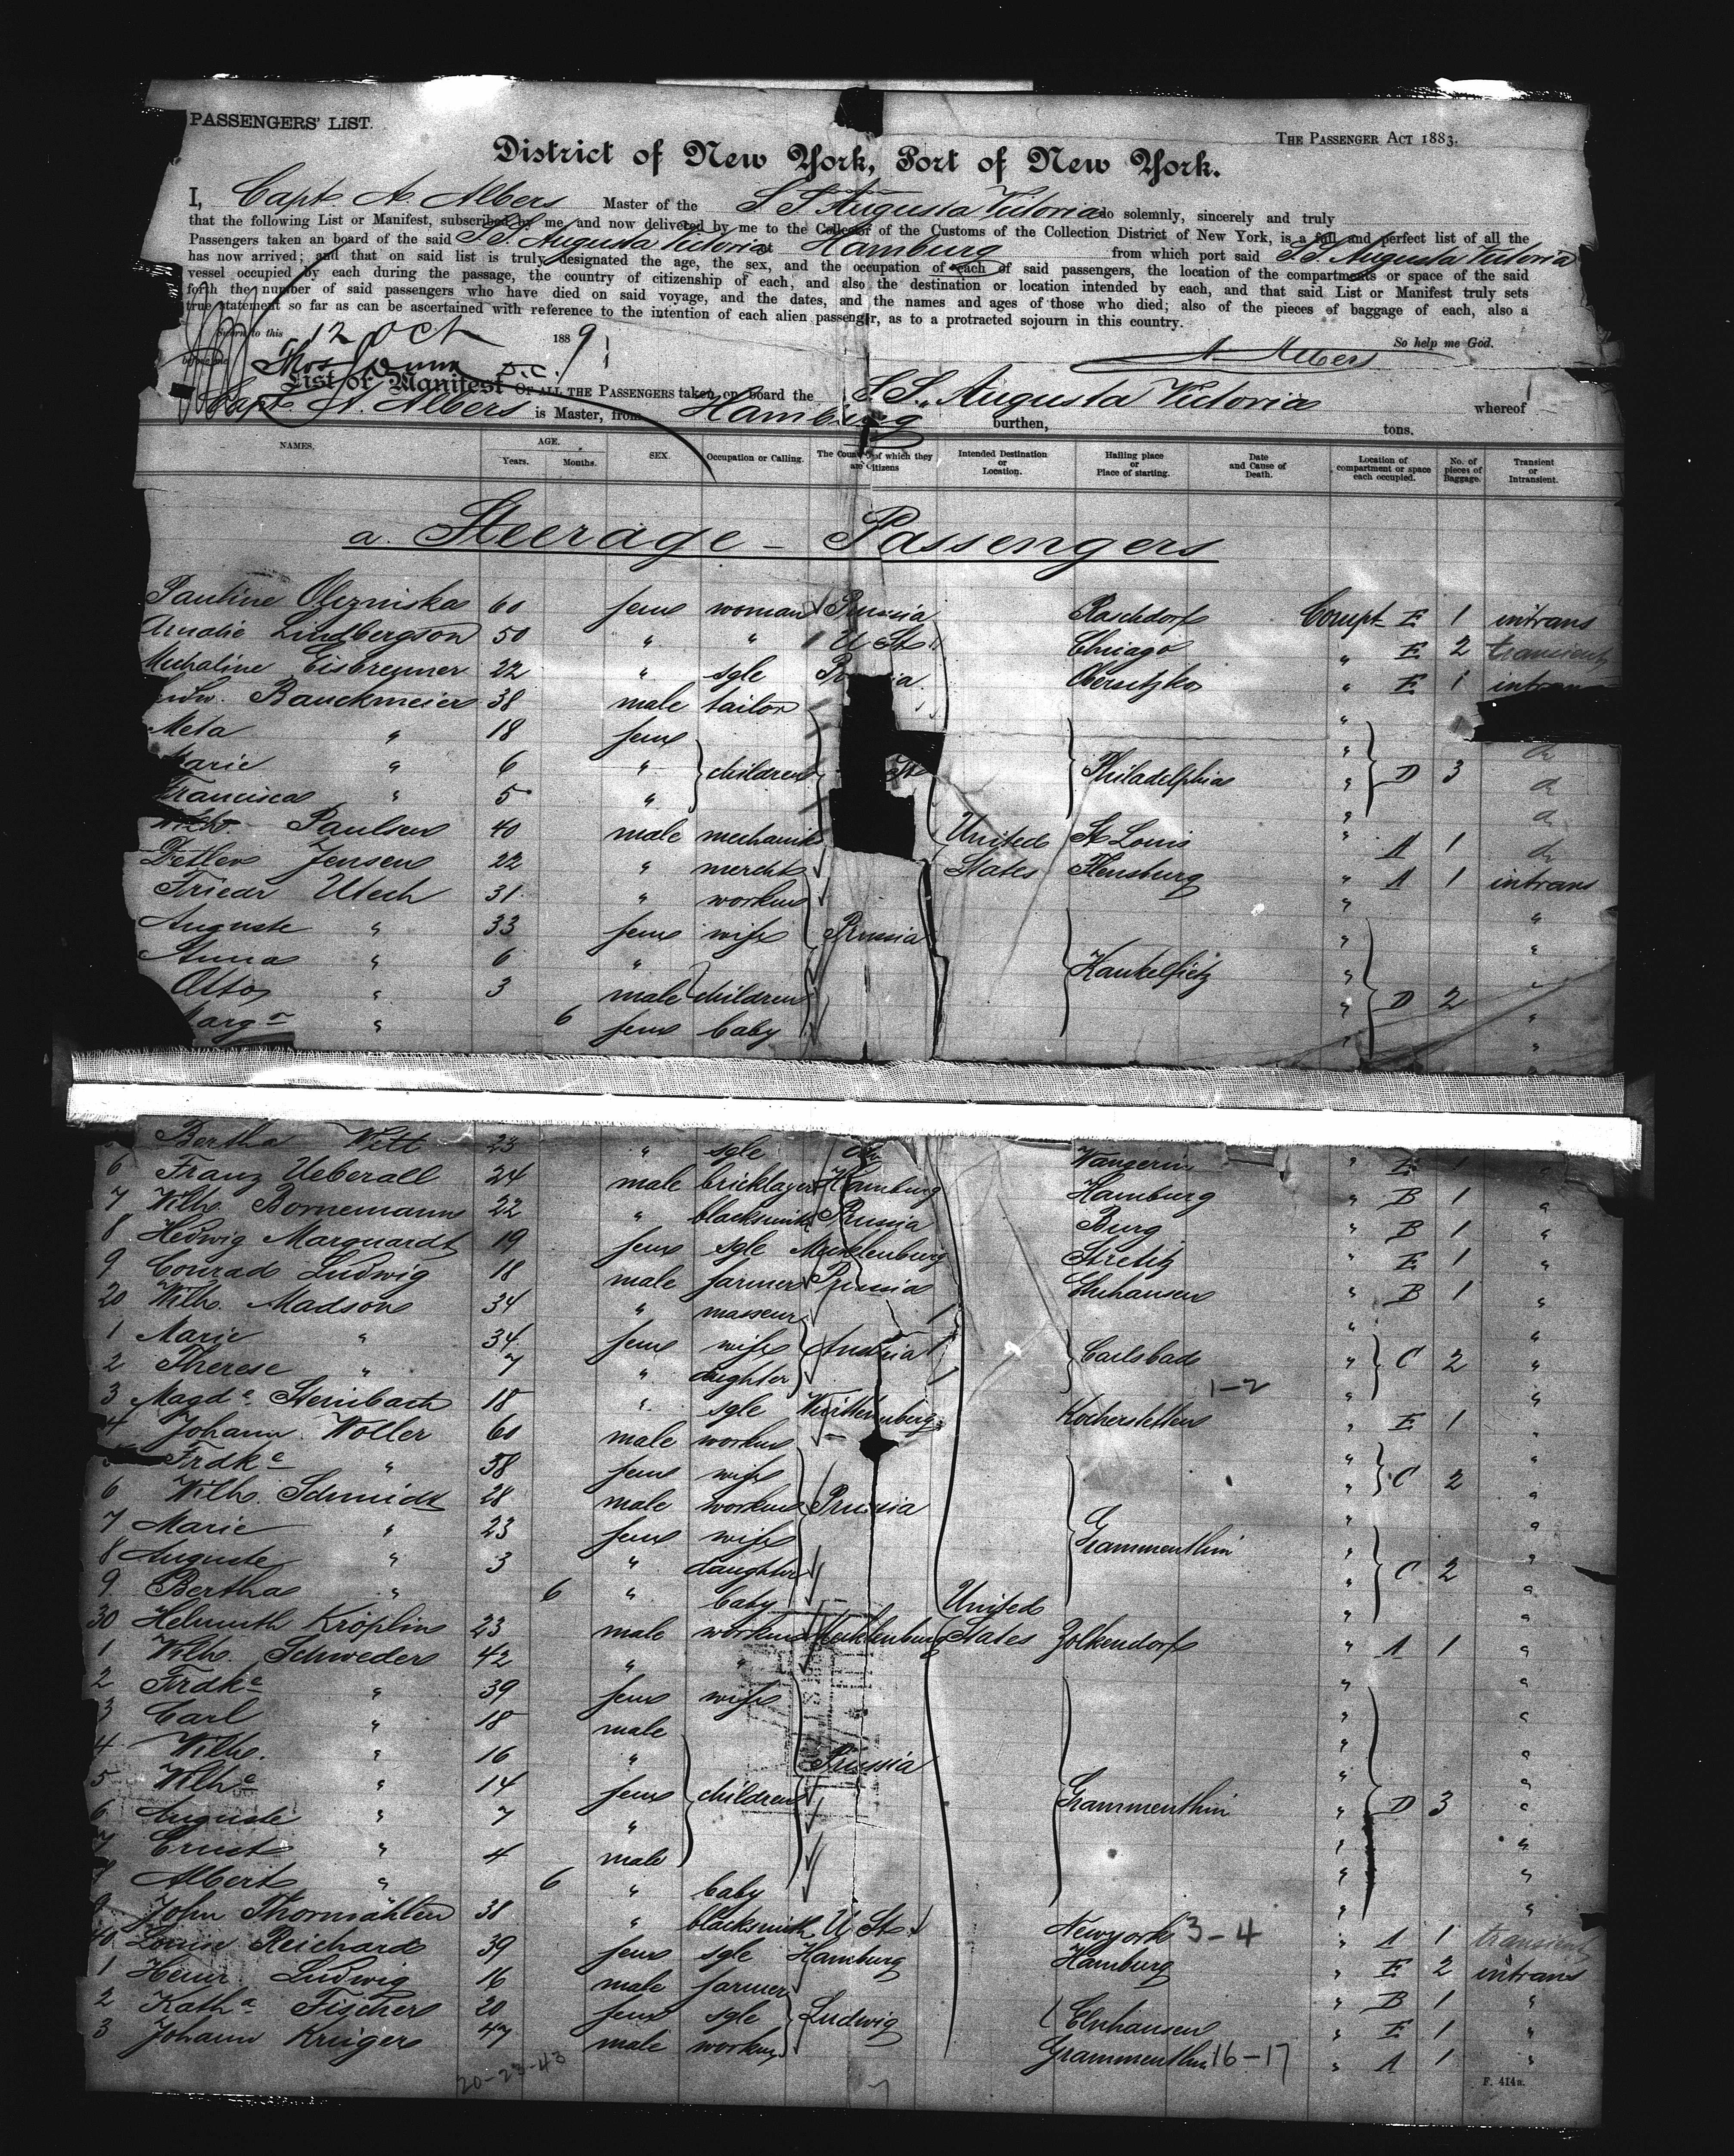 PASSENGERS' LIST.
THE PASSENGER ACT 1883.
District of New York, Port of New York.
I, Capt. A. Albers Master of the S S Augusta Victoria do solemnly, sincerely and truly
that the following List or Manifest, subscribed by me and now delivered by me to the Collector of the Customs of the Collection District of New York, is a full and perfect list of all the
Passengers taken an board of the said S. S. Augusta Victoria at Hamburg from which port said S S Augusta Victoria
has now arrived; and that on said list is truly designated the age, the sex, and the occupation of each of said passengers, the location of the compartments or space of the said
vessel occupied by each during the passage, the country of citizenship of each, and also the destination or location intended by each, and that said List or Manifest truly sets
forth the number of said passengers who have died on said voyage, and the dates, and the names and ages of those who died; also of the pieces of baggage of each, also a
true statement so far as can be ascertained with reference to the intention of each alien passenger, as to a protracted sojourn in this country.
Sworn to this 12 Oct 1889 So help me God.
before me Thos Dunn D.C. A Albers
List or Manifest OF ALL THE PASSENGERS taken on board the S. S. Augusta Victoria whereof
Capt. A. Albers is Master, from Hamburg burthen, tons.
NAMES. AGE. Years. Months. SEX. Occupation or Calling. The Country of which they are Citizens Intended Destination or Location. Hailing place or Place of starting. Date and Cause of Death. Location of compartment or space each occupied. No. of pieces of Baggage. Transient or Intransient.
a. Steerage - Passengers
Pauline 60 fem woman Prussia Raschdorf Compt E 1 intrans
Amalie Lindbergson 50 " " U St Chicago " E 2 transient
Michaline Eisbrenner 22 " sgle Obersitzko " E 1
Bauckmeier 38 male tailor "
Meta " 18 fem "
Marie " 6 " children Philadelphia " D 3
Francisca " 5 "
Wilh. Paulsen 40 male mechanik United St Louis " A 1
Detlev Jensen 22 " mercht States Flensburg " A 1 intrans
Friedr Utech 31 " workm " "
Auguste " 33 fem wife Prussia " "
Anna " 6 " "
Otto " 3 male children " D 2 "
Marg " 6 fem baby " "
Bertha Witt 23 " sgle Wangerin " E 1 "
6 Franz Ueberall 24 male bricklayer Hamburg Hamburg " B 1 "
7 Wilh. Bornemann 22 " blacksmith Prussia Burg " B 1 "
8 Hedwig Marquardt 19 fem sgle Mecklenburg Strelitz " E 1 "
9 Conrad Ludwig 18 male farmer Prussia " B 1 "
20 Wilh. Madson 34 " masseur " "
1 Marie " 34 fem wife Austria Carlsbad " C 2 "
2 Therese " 7 " daughter 1-2 " "
3 Magde Steinbach 18 " sgle Württemberg Kocherstetten " E 1 "
4 Johann Woller 60 male workm " "
Frdke " 58 fem wife " C 2 "
6 Wilh. Schmidt 28 male workm Prussia " "
7 Marie " 23 fem wife Grammenthin " "
8 Auguste " 3 " daughter " C 2 "
9 Bertha " 6 " baby United " "
30 Helmuth Kröplin 23 male workm Mecklenburg States Zolkendorf " A 1 "
1 Wilh. Schweder 42 " " " "
2 Frdke " 39 fem wife " "
3 Carl " 18 male " "
4 Wilh. " 16 " Prussia " "
5 Wilhe " 14 fem children Grammenthin " D 3 "
6 Auguste " 7 " " "
7 Ernst " 4 male " "
8 Albert " 6 " baby " "
9 John Thormählen 38 " blacksmith U St New york 3-4 " A 1 transient
40 Louise Reichard 39 fem sgle Hamburg Hamburg " E 2 intrans
1 Heinr. Ludwig 16 male farmer " B 1 "
2 Katha Fischer 20 fem sgle Ludwig " E 1 "
3 Johann Krüger 47 male workm Grammenthin 16-17 " A 1 "
20-23-43
F. 414a.